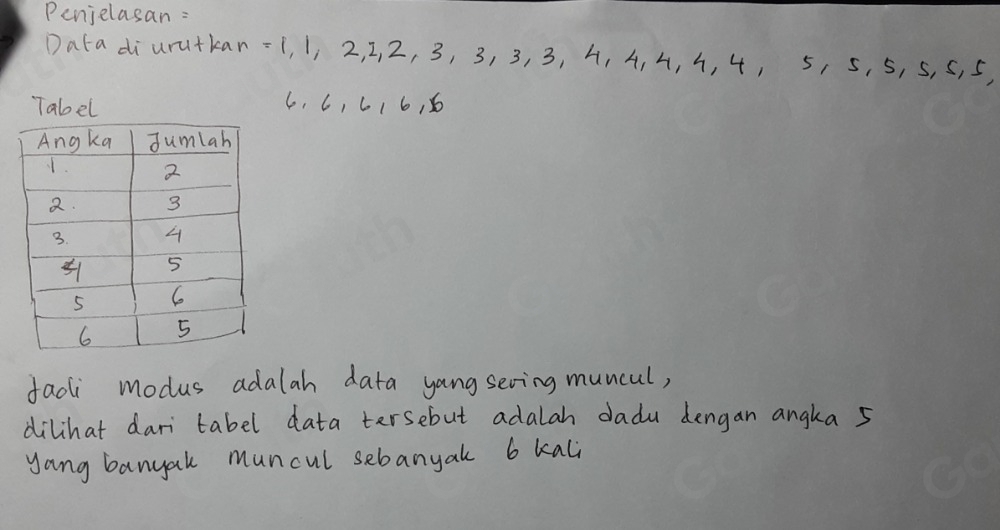 Penjelasan =
Data di urutkan = 1, 1, 2, 2, 2, 3, 3, 3, 3, 4, 4, 4, 4, 4, 5, 5, 5, 5, 5, 5,
6, 6, 6, 6, 6
Tabel
Angka Jumlah
1. 2
2. 3
3. 4
4 5
5 6
6 5
Jadi modus adalah data yang sering muncul,
dilihat dari tabel data tersebut adalah dadu dengan angka 5
yang banyak muncul sebanyak 6 kali